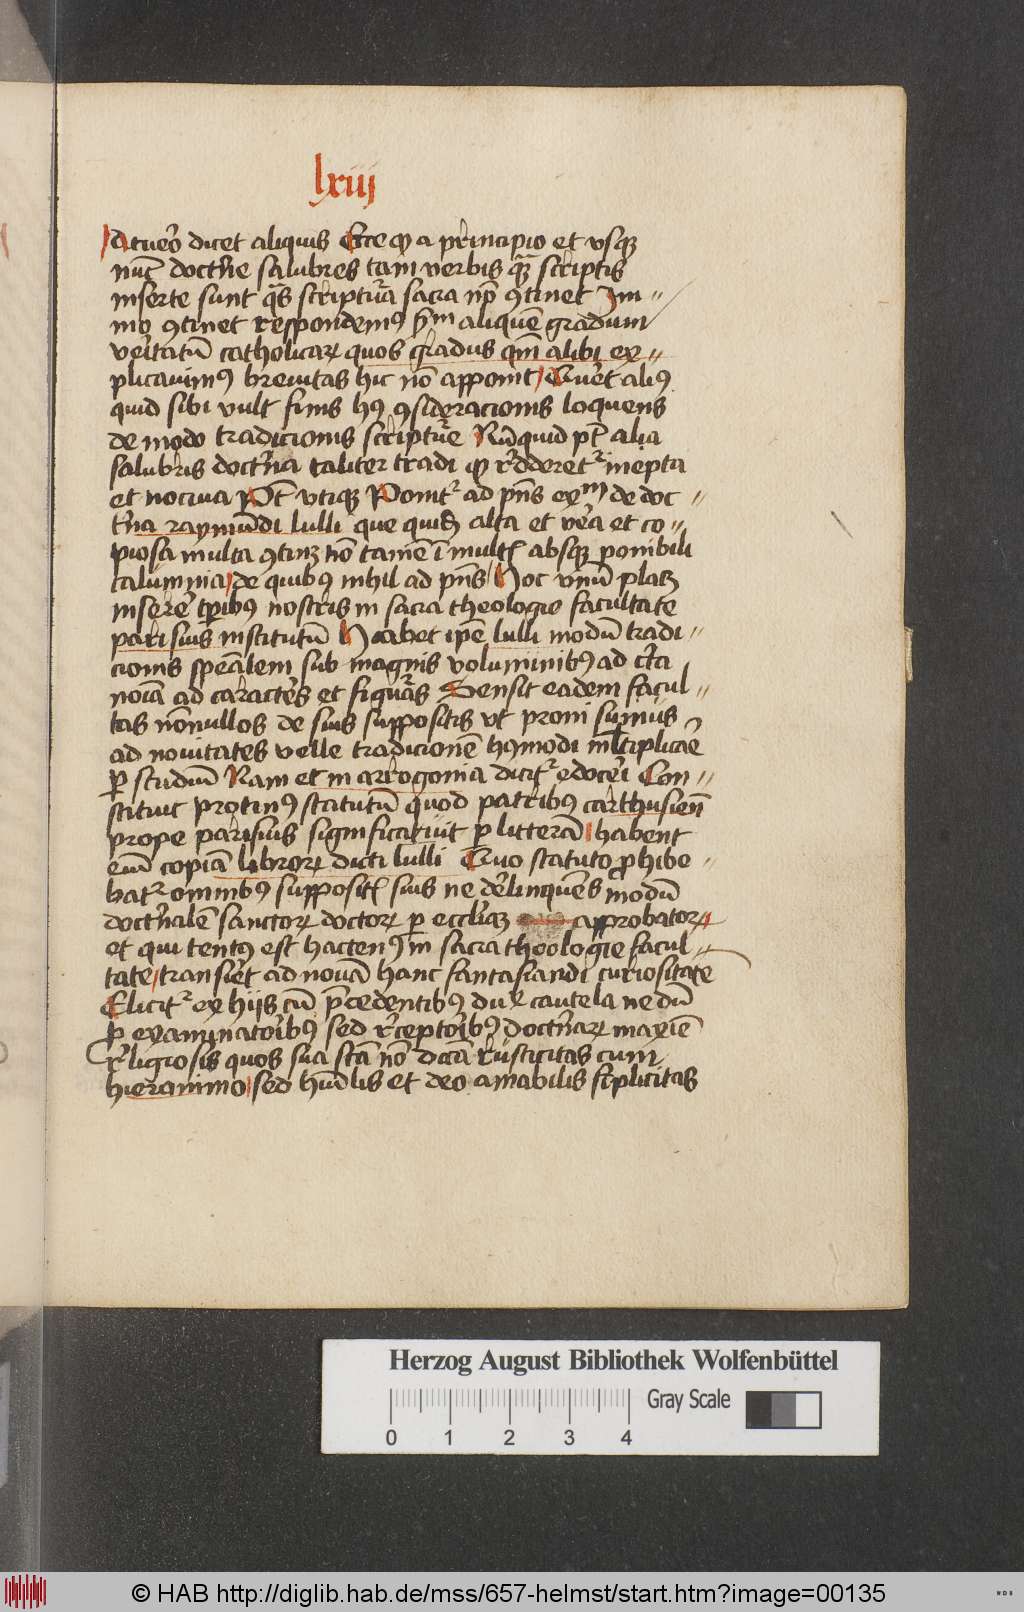 lxiij
Atuero dicet aliquis Ecce qͦ a principio et vsqꝫ
nūc doctͥne salubres tam verbis qͣꝫ scriptis
inserte sunt qͣs scriptura sacra nō ꝯtinet Im〃
mo ꝯtinet respondemꝰ ẜm aliquē gradum
veritatū catholicaꝝ quos gradus qm̄ alibi ex〃
plicauimꝰ breuitas hic nō apponit Queret aliꝰ
quid sibi vult finis hꝰ ꝯsideracionis loquens
de modo tradicionis scripture Nūquid pt̄ alia
salubris doctͥna taliter tradi qͦ redderet᷑ inepta
et nociua Pt̄ vtiqꝫ Ponit᷑ ad pn̄s exᵐ de doc〃
tͥna raymūdi lulli que quidē alta et vera et co〃
piosa multa ꝯtinꝫ nō tamē ī mult͛ absqꝫ ponibili
calumnia de quibꝰ nihil ad pn̄s Hoc vnū placꝫ
inserē tꝑibꝰ nostris in sacra theologie facultate
parisius institutū Habet ip̄e lulli modū tradi〃
cionis spēalem sub magnis voluminibꝰ ad cͬta
noīa ad caracteͬs et figuras Sensit eadem facul〃
tas nōnullos de suis suppositis vt proni sumus
ad nouitates velle tradicionē hꝰmodi ml̄tiplicaē
ꝑ studiū Nam et in arrogonia dicit᷑ edoceri Con〃
stituit protinꝰ statutū quod patribus carthusieñ
prope parisius significatiuit ꝑ litterā habent
enī copiā libroꝝ dicti lulli Quo statuto ꝓhibe〃
bat᷑ omnibꝰ supposit͛ suis ne derlinquens modū
doctͥnalē sanctoꝝ doctoꝝ ꝑ eccliaꝫ approbatoꝝ
et qui tentꝰ est hactenꝰ in sacra theologie facul〃
tate transiret ad nouā hanc fantasiandi curiositatē
Elicit᷑ ex hijs cū p̄cedentibꝰ dux cautela nedū
ꝑ examinatoribꝰ sed receptoribꝰ doctͥnaꝝ maxiē
religiosis quos sua sctā nō dicā rusticitas cum
hieronimo sed hūilis et deo amabilis siplicitas
Herzog August Bibliothek Wolfenbüttel
Gray Scale
0 1 2 3 4
© HAB http://diglib.hab.de/mss/657-helmst/start.htm?image=00135